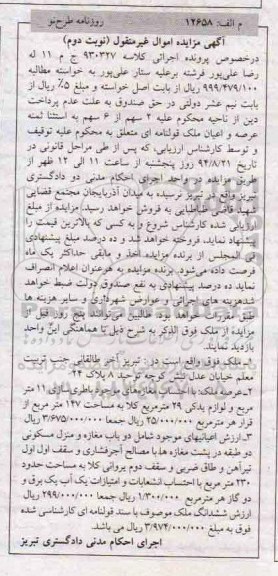 م الف: ۱۲۶۵۸ روزنامه طرح نو
آگهی مزایده اموال غیرمنقول (نوبت دوم)
درخصوص پرونده اجرائی کلاسه ۹۳۰۳۲۷ ج م ۱۱ له
رضا علی‌پور فرشته برعلیه ستار علی‌پور به خواسته مطالبه
۹۹۹/۴۷۹/۱۰۰ ریال از بابت اصل خواسته و مبلغ ۵٪ ریال از
بابت نیم عشر دولتی در حق صندوق به علت عدم پرداخت
دین از ناحیه محکوم علیه ۲ سهم از ۶ سهم به استثنا ثمنه
عرصه و اعیان ملک قولنامه ای متعلق به محکوم علیه توقیف
و توسط کارشناس ارزیابی، که پس از طی مراحل قانونی در
تاریخ ۹۴/۸/۲۱ روز پنجشنبه از ساعت ۱۱ الی ۱۲ ظهر از
طریق مزایده در واحد اجرای احکام مدنی دو دادگستری
تبریز واقع در تبریز نرسیده به میدان آذربایجان مجتمع قضایی
شهید قاضی طباطبایی به فروش خواهد رسید. مزایده از مبلغ
ارزیابی شده کارشناس شروع و به کسی که بالاترین قیمت را
پیشنهاد نماید، فروخته خواهد شد و ده درصد مبلغ پیشنهادی
فی المجلس از برنده مزایده اخذ و مابقی حداکثر یک ماه
فرصت داده می‌شود. برنده مزایده به هر عنوان اعلام انصراف
نماید ده درصد پیشنهادی به نفع صندوق دولت ضبط خواهد
شد هزینه های اجرائی و عوارض شهرداری و سایر هزینه ها
طبق مقررات خواهد بود. طالبین می‌توانند پنج روز قبل از
مزایده از ملک فوق الذکر به شرح ذیل با هماهنگی این واحد
بازدید نمایند.
۱-ملک فوق واقع است در: تبریز آخر طالقانی جنب تربیت
معلم خیابان عدل تبش کوچه توحید ۸ پلاک ۲۴
۲-عرصه ملک: با احتساب مغازه‌های موجود باطری سازی ۱۱ متر
مربع و لوازم یدکی ۲۹ مترمربع کلا به مساحت ۱۴۷ متر مربع از
قرار هر مترمربع ۲۵/۰۰۰/۰۰۰ ریال جمعا ۳/۶۷۵/۰۰۰/۰۰۰ ریال
۳-ارزش اعیانیهای موجود شامل دو باب مغازه و منزل مسکونی
دو طبقه در پشت مغازه ها با مصالح آجرفشاری و سقف اول اول
تیرآهن و طاق ضربی و سقف دوم پروانی کلا به مساحت حدود
۲۳۰ متر مربع با احتساب انشعابات و امتیازات یک آب یک برق و
دو گاز هر مترمربع ۱/۳۰۰/۰۰۰ ریال جمعا ۲۹۹/۰۰۰/۰۰۰ ریال
ارزش ششدانگ ملک موصوف با سند قولنامه ای کارشناسی شده
فوق به مبلغ ۳/۹۷۴/۰۰۰/۰۰۰ ریال می باشد.
اجرای احکام مدنی دادگستری تبریز